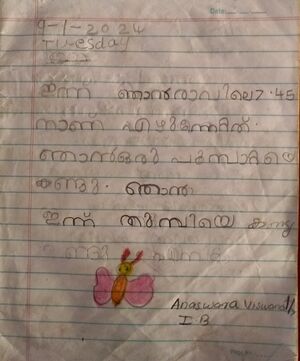 9-1-2024
Tuesday
ഇന്ന് ഞാൻ രാവിലെ 7.45
നാണ് എഴുന്നേറ്റത്.
ഞാൻ ഒരു പൂമ്പാറ്റയെ
കണ്ടു. ഞാൻ
ഇന്ന് തുമ്പിയെ കണ്ടു
Anaswara Viswanath
I B
Date: